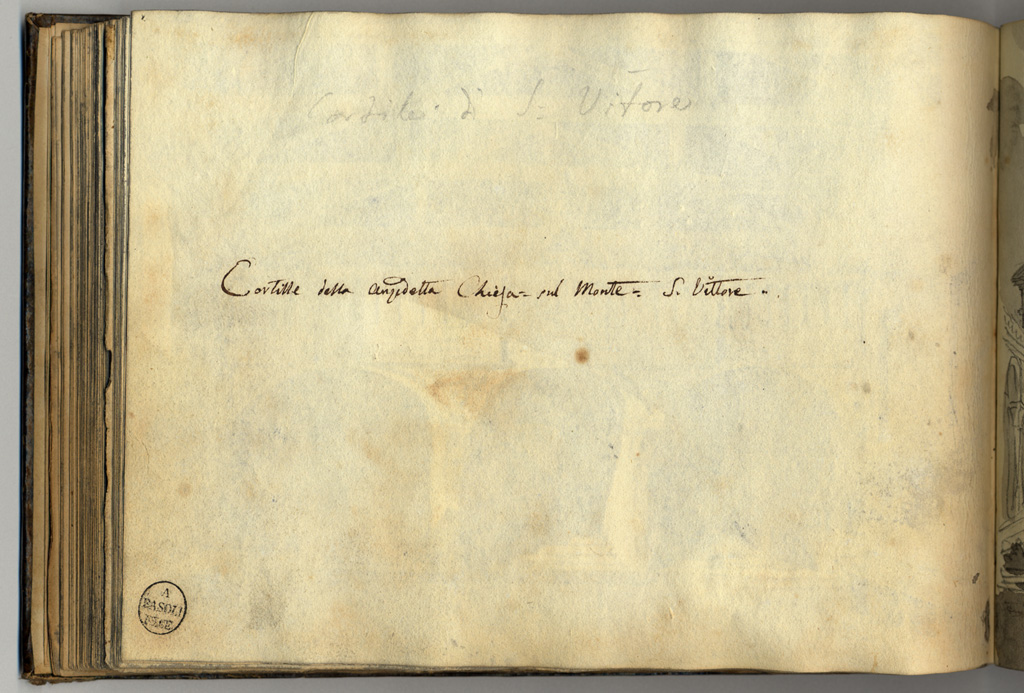 Cortile di S. Vitore
Cortille della anzidetta Chiesa = sul Monte = S. Vittore =.
A
BASOLI
FECE